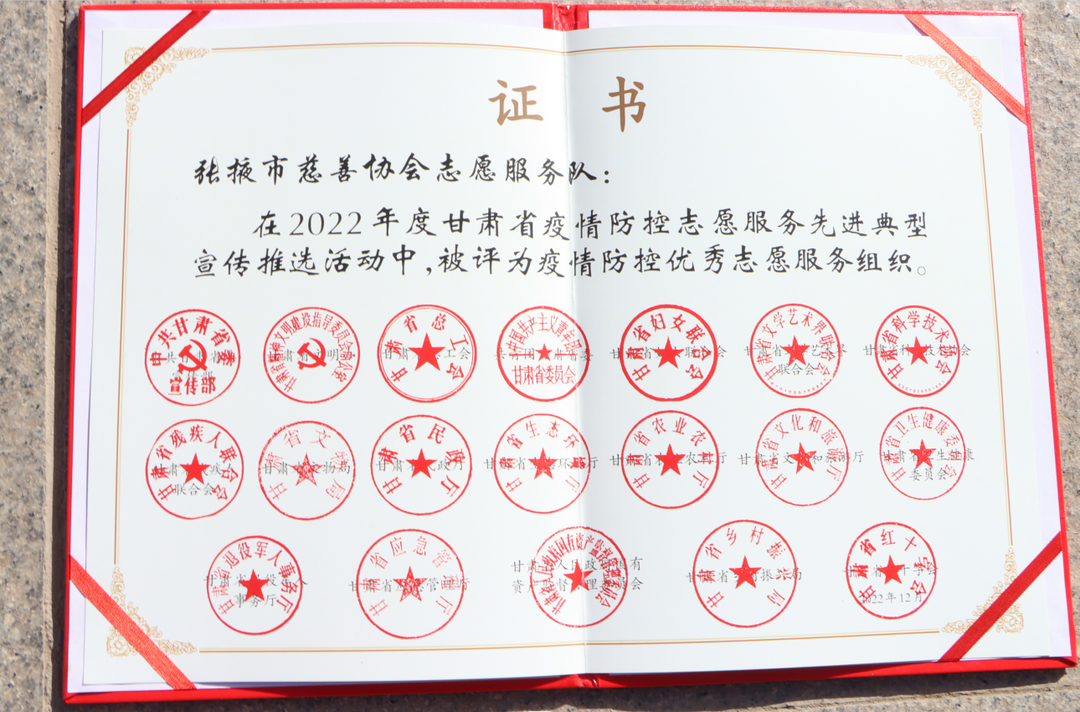 证书
张掖市慈善协会志愿服务队：
在2022年度甘肃省疫情防控志愿服务先进典型
宣传推选活动中，被评为疫情防控优秀志愿服务组织。
中共甘肃省委
宣传部
甘肃省总工会
中国共产主义青年团
甘肃省委员会
甘肃省妇女联合会
甘肃省文学艺术界联合会
联合会
甘肃省科学技术协会
甘肃省残疾人联合会
联合会
甘肃省文物局
甘肃省民政厅
甘肃省生态环境厅
甘肃省农业农村厅
甘肃省文化和旅游厅
甘肃省卫生健康委员会
委员会
甘肃省退役军人事务厅
事务厅
甘肃省应急管理厅
甘肃省人民政府国有资产监督管理委员会
甘肃省乡村振兴局
甘肃省红十字会
2022年12月